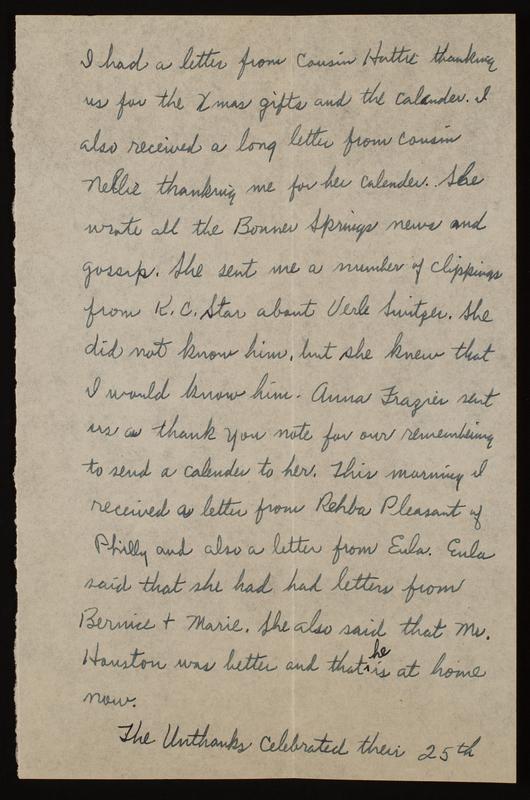 I had a letter from Cousin Hattie thanking
us for the Xmas gifts and the calander. I
also received a long letter from cousin
Nellie thanking me for her calender. She
wrote all the Bonner Springs news and
gossip. She sent me a number of clippings
from K.C. Star about Verle Switzer. She
did not know him, but she knew that
I would know him. Anna Frazier sent
us a thank you note for our remembering
to send a calender to her. This morning I
received a letter from Rehba Pleasant of
Philly and also a letter from Eula. Eula
said that she had had letters from
Bernice + Marie. She also said that Mr.
Houston was better and that he is at home
now.
The Unthanks celebrated their 25th